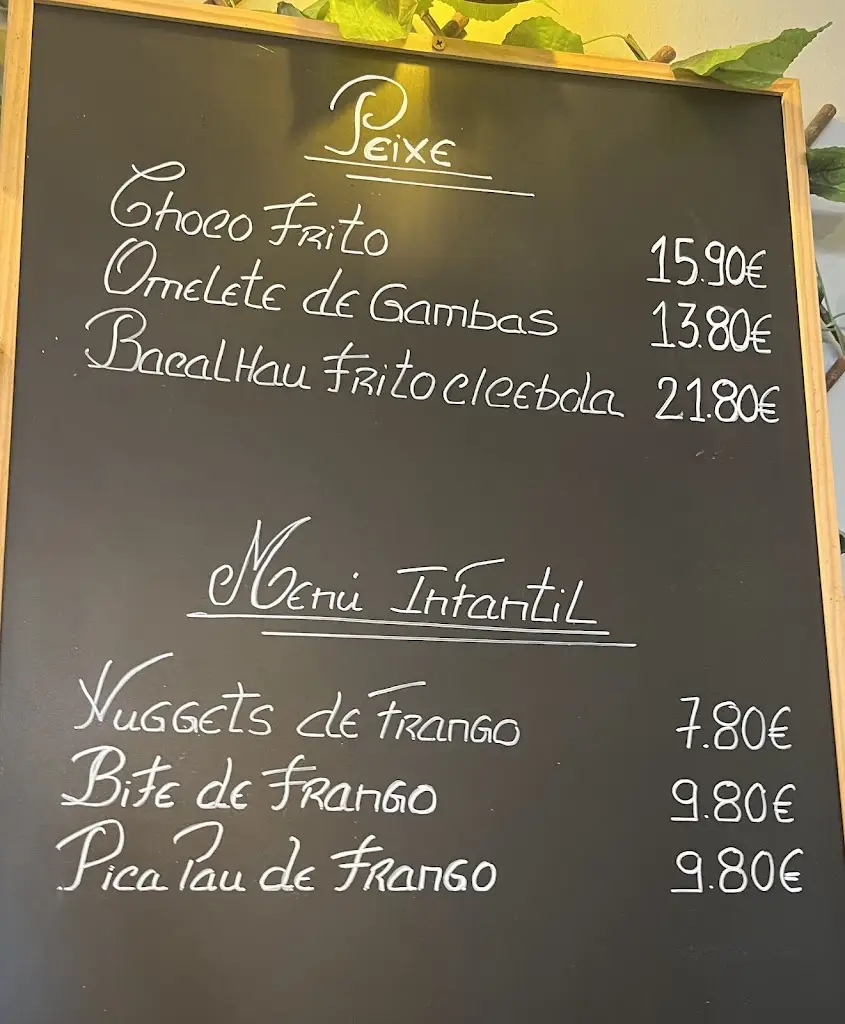 Peixe
Choco Frito 15.90€
Omelete de Gambas 13.80€
Bacalhau Frito c/cebola 21.80€
Menú Infantil
Nuggets de Frango 7.80€
Bife de Frango 9.80€
Pica Pau de Frango 9.80€